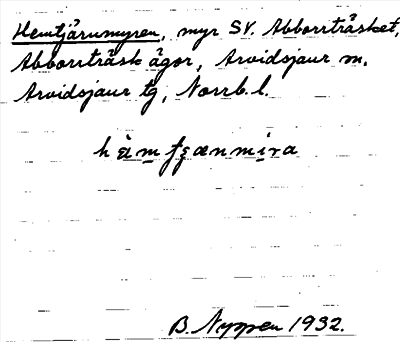 Hemtjärnmyren, myr SV. Abborrträsket,
Abborrträsk ägor, Arvidsjaur sn.
Arvidsjaur tg, Norrb. l.
B. Nyppen 1932.